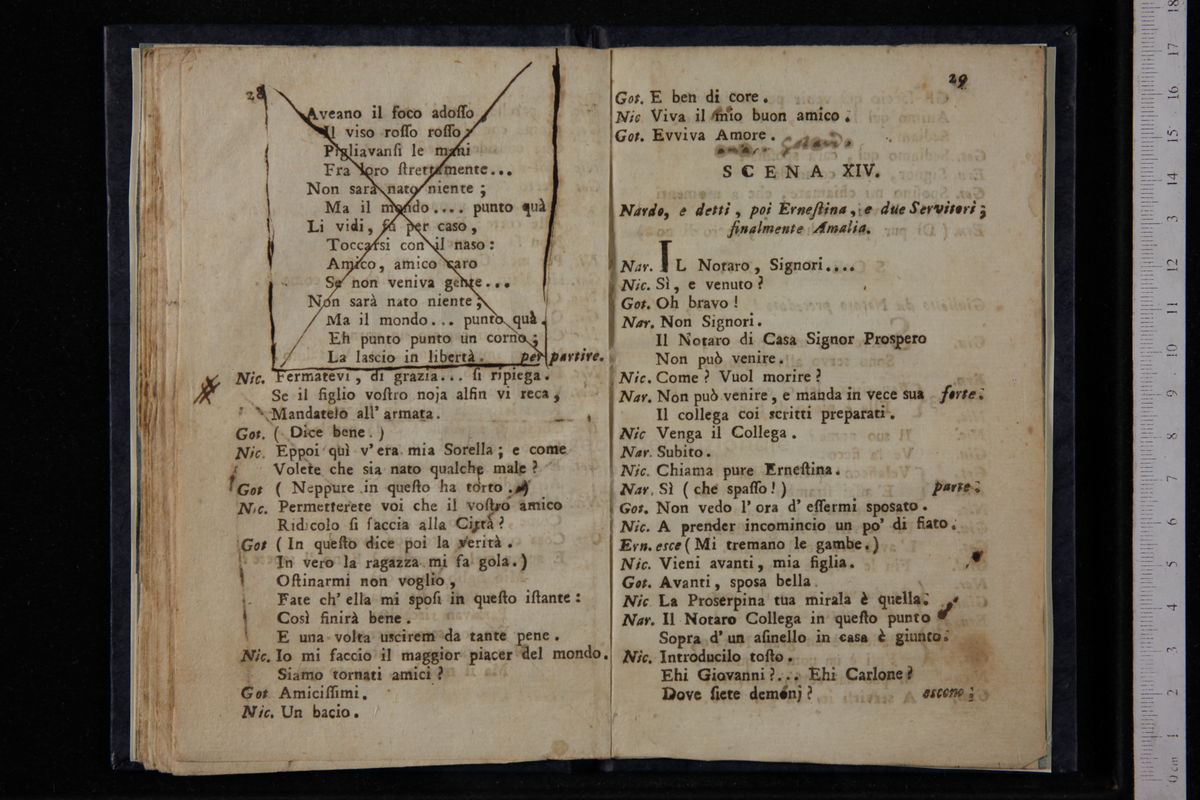 28
Aveano il foco adosso,
Il viso rosso rosso:
Pigliavansi le mani
Fra loro strettamente...
Non sarà nato niente;
Ma il mondo.... punto quà
Li vidi, fu per caso,
Toccarsi con il naso:
Amico, amico caro
Se non veniva gente...
Non sarà nato niente;
Ma il mondo... punto quà.
Eh punto punto un corno;
La lascio in libertà. per partire.
Nic. Fermatevi, di grazia... si ripiega.
Se il figlio vostro noja alfin vi reca,
Mandatelo all' armata.
Got. (Dice bene.)
Nic. Eppoi quì v' era mia Sorella; e come
Volete che sia nato qualche male?
Got (Neppure in questo ha torto.)
Nic. Permetterete voi che il vostro amico
Ridicolo si faccia alla Città?
Got (In questo dice poi la verità.
In vero la ragazza mi fa gola.)
Ostinarmi non voglio,
Fate ch' ella mi sposi in questo istante:
Così finirà bene.
E una volta uscirem da tante pene.
Nic. Io mi faccio il maggior piacer del mondo.
Siamo tornati amici?
Got Amicissimi.
Nic. Un bacio.
29
Got. E ben di core.
Nic Viva il mio buon amico.
Got. Evviva Amore.
SCENA XIV.
Nardo, e detti, poi Ernestina, e due Servitori;
finalmente Amalia.
Nar. IL Notaro, Signori....
Nic. Sì, e venuto?
Got. Oh bravo!
Nar. Non Signori.
Il Notaro di Casa Signor Prospero
Non può venire.
Nic. Come? Vuol morire?
Nar. Non può venire, e manda in vece sua forte.
Il collega coi scritti preparati.
Nic Venga il Collega.
Nar. Subito.
Nic. Chiama pure Ernestina.
Nar. Sì (che spasso!) parte.
Got. Non vedo l' ora d' essermi sposato.
Nic. A prender incomincio un po' di fiato.
Ern. esce (Mi tremano le gambe.)
Nic. Vieni avanti, mia figlia.
Got. Avanti, sposa bella.
Nic La Proserpina tua mirala è quella.
Nar. Il Notaro Collega in questo punto
Sopra d' un asinello in casa è giunto.
Nic. Introducilo tosto.
Ehi Giovanni?... Ehi Carlone?
Dove siete demonj? escono;